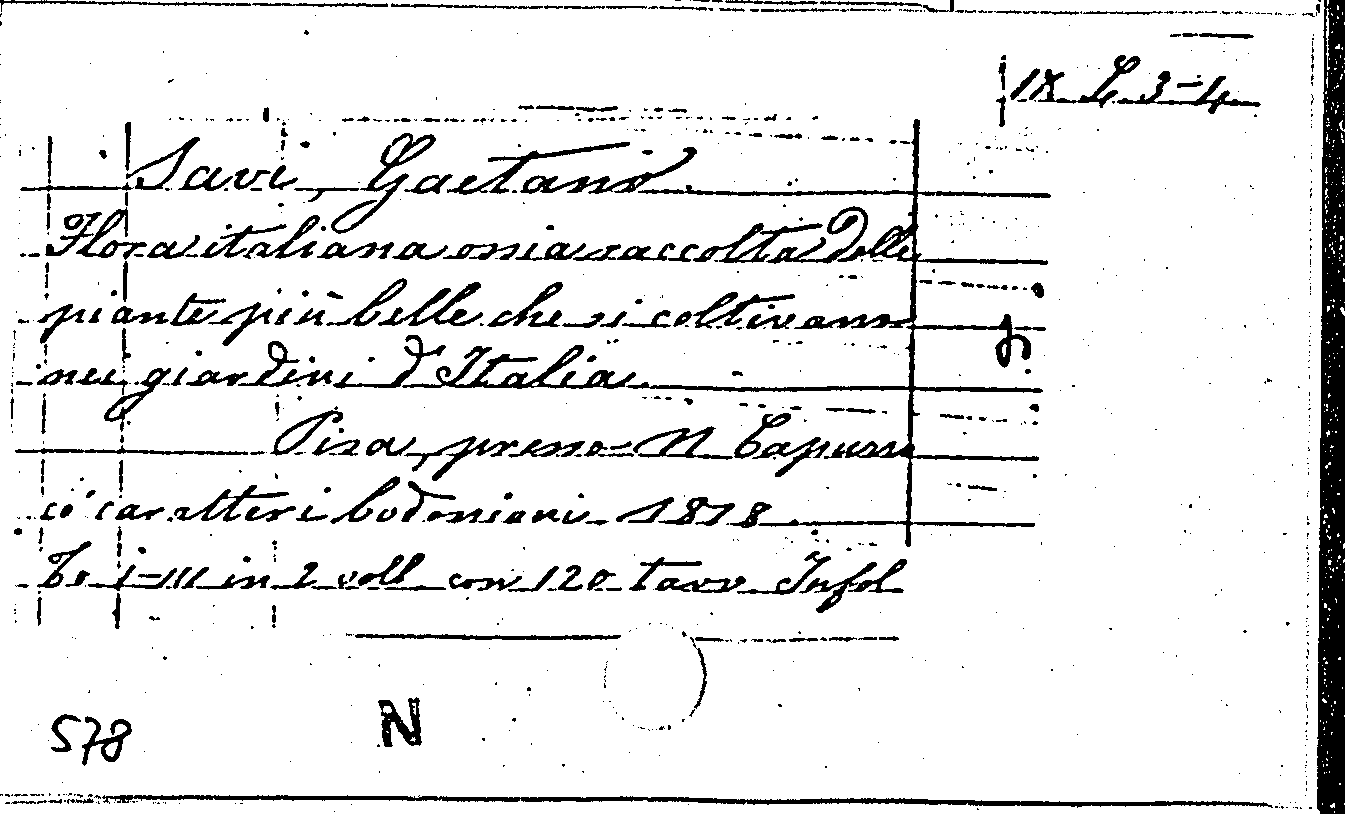 IX L 3-4
Savi, Gaetano.
Flora italiana ossia raccolta delle
piante più belle che si coltivano
nei giardini d'Italia.
Pisa, presso N. Capurro
co' caratteri bodoniani 1818
To I-III in 2 voll. con 120 tavv. Infol
578 N